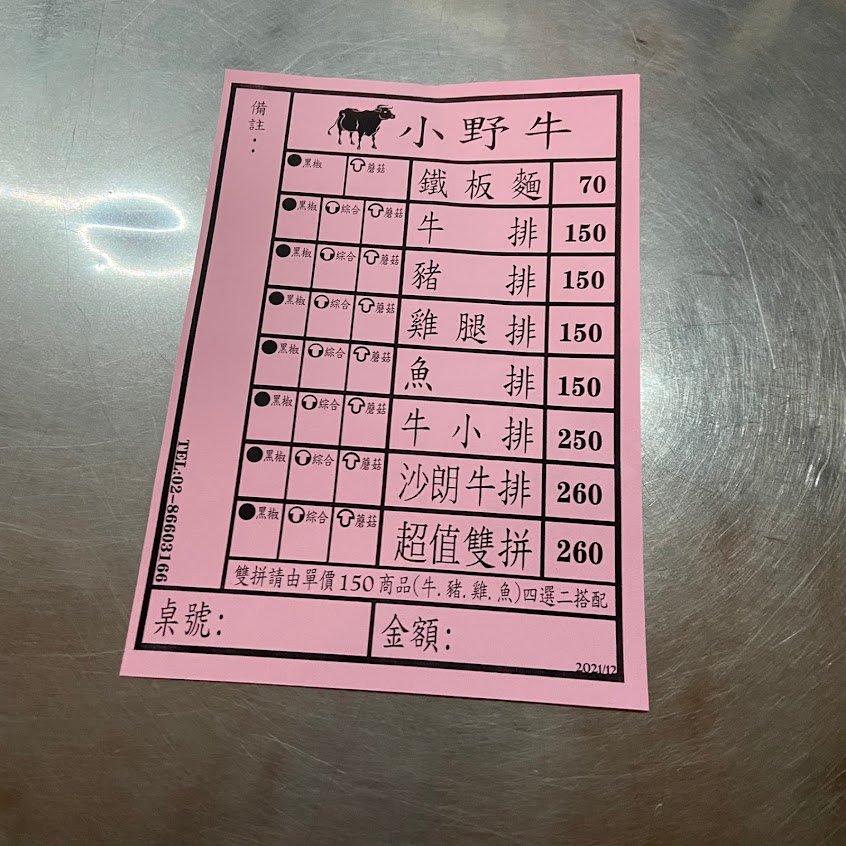 備註：
小野牛
黑椒 蘑菇 鐵板麵 70
黑椒 綜合 蘑菇 牛排 150
黑椒 綜合 蘑菇 豬排 150
黑椒 綜合 蘑菇 雞腿排 150
黑椒 綜合 蘑菇 魚排 150
黑椒 綜合 蘑菇 牛小排 250
黑椒 綜合 蘑菇 沙朗牛排 260
黑椒 綜合 蘑菇 超值雙拼 260
雙拼請由單價150商品(牛.豬.雞.魚)四選二搭配
TEL:02-86603166
桌號: 金額:
2021/12